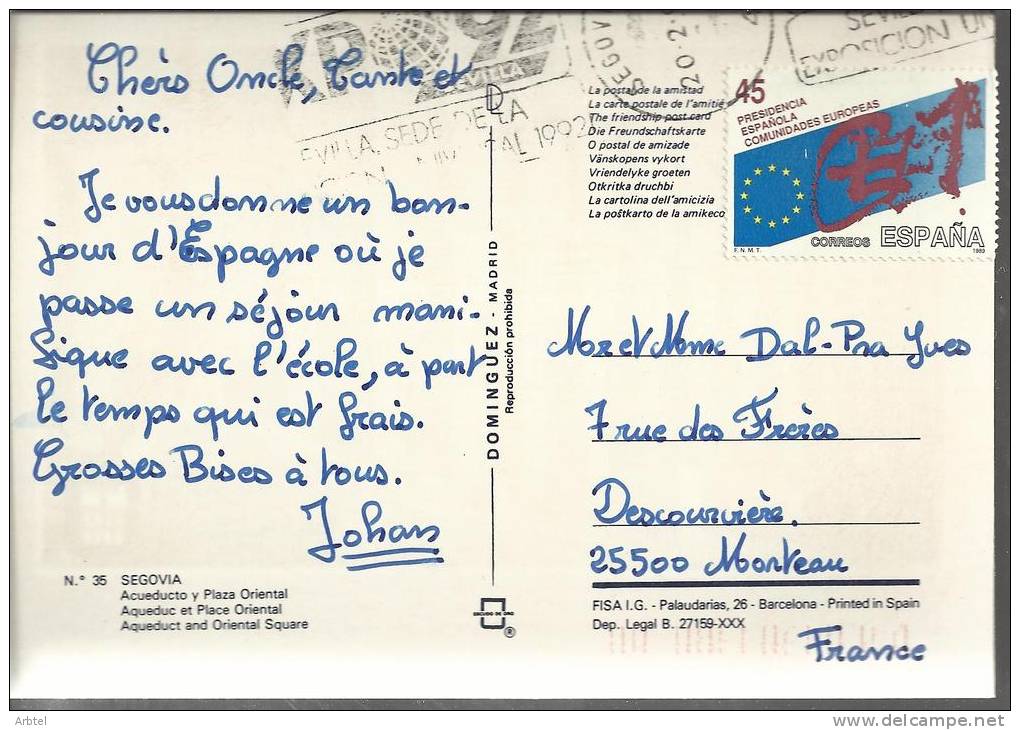 Chèrs Oncle, Tante et
cousine.
Je vous donne un bon-
jour d'Espagne où je
passe un séjour mani-
fique avec l'école, à part
le temps qui est frais.
Grosses Bises à tous.
Johan
N.° 35 SEGOVIA
Acueducto y Plaza Oriental
Aqueduc et Place Oriental
Aqueduct and Oriental Square
DOMINGUEZ - MADRID
Reproducción prohibida
ESCUDO DE ORO
®
EXPO 92
SEVILLA
SEVILLA, SEDE DE LA
1992
SEGOV
20-2
SEVIL
EXPOSICION UN
La postal de la amistad
La carte postale de l'amitié
The friendship post card
Die Freundschaftskarte
O postal de amizade
Vänskopens vykort
Vriendelyke groeten
Otkritka druchbi
La cartolina dell'amicizia
La poŝtkarto de la amikeco
45
PRESIDENCIA
ESPAÑOLA
COMUNIDADES EUROPEAS
CORREOS ESPAÑA
F.N.M.T. 1989
Mr et Mme Dal-Pra Yves
7 rue des Frères
Descourvière.
25500 Morteau
FISA I.G. - Palaudarias, 26 - Barcelona - Printed in Spain
Dep. Legal B. 27159-XXX
France
Arbtel
delcampe.net